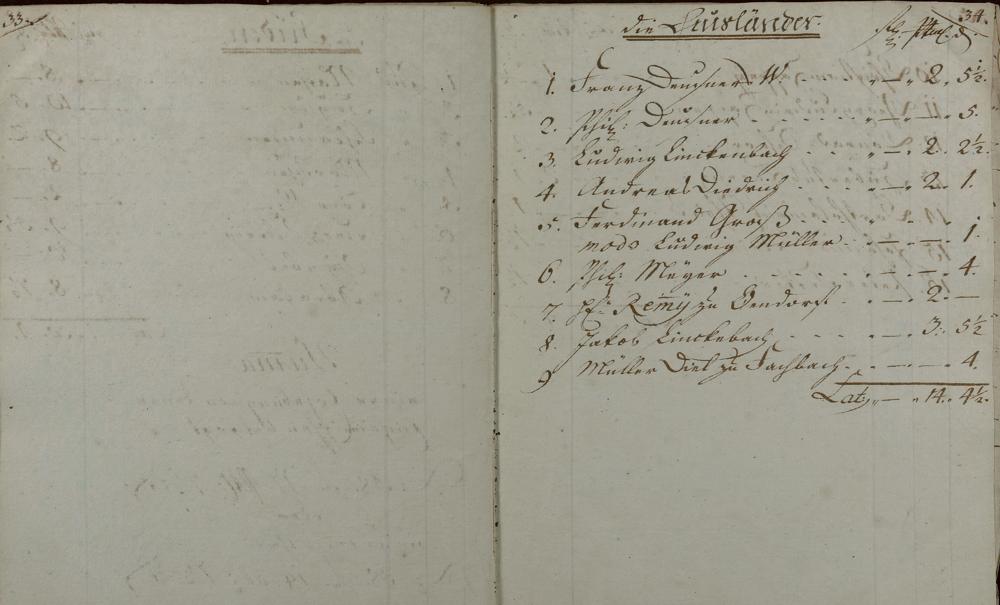 33.
34.
die Ausländer.
1. Franz Deusner W. — 2. 5½.
2. Phil: Deusner — — 5.
3. Ludwig Linckenbach — 2. 2½.
4. Andreas Diedrich — 2. 1.
5. Ferdinand Groß
modo Ludwig Müller — — 1.
6. Phil: Meyer — — 4.
7. H: Remy zu Bendorf — 2. —
8. Jakob Linckebach — 3. 5½
9 Müller Diel zu Fachbach — — 4.
Lat. — 14. 4½.